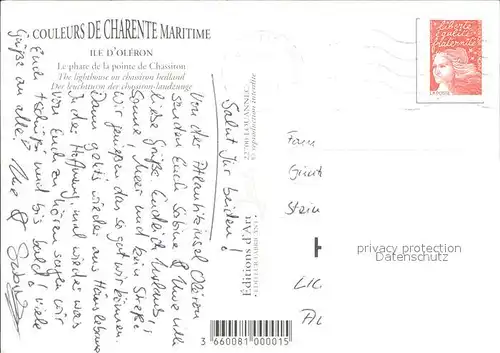 COULEURS DE CHARENTE MARITIME
ILE D'OLÉRON
Le phare de la pointe de Chassiron
The lighthouse on chassiron hedland
Der leuchtturm der chassiron-landzunge
Salut Ihr beiden!
Von der Atlantikinsel Oléron
senden Euch Sabine & Uwe viele
liebe Grüße. Endlich Urlaub!
Sonne! Meer und kein Streß!
Wir genießen das so gut wir können.
Dann geht's wieder ans
In der Hoffnung, mal wieder was
von Euch zu hören sagen wir
Euch tschüß und bis bald! Viele
Grüße an alle! Uwe &
22700 LOUANNEC
© reproduction interdite
Editions d'Art
liberté
égalité
fraternité
LA POSTE
Fam
Günt
Stein
privacy protection
Datenschutz
3 660081 000015